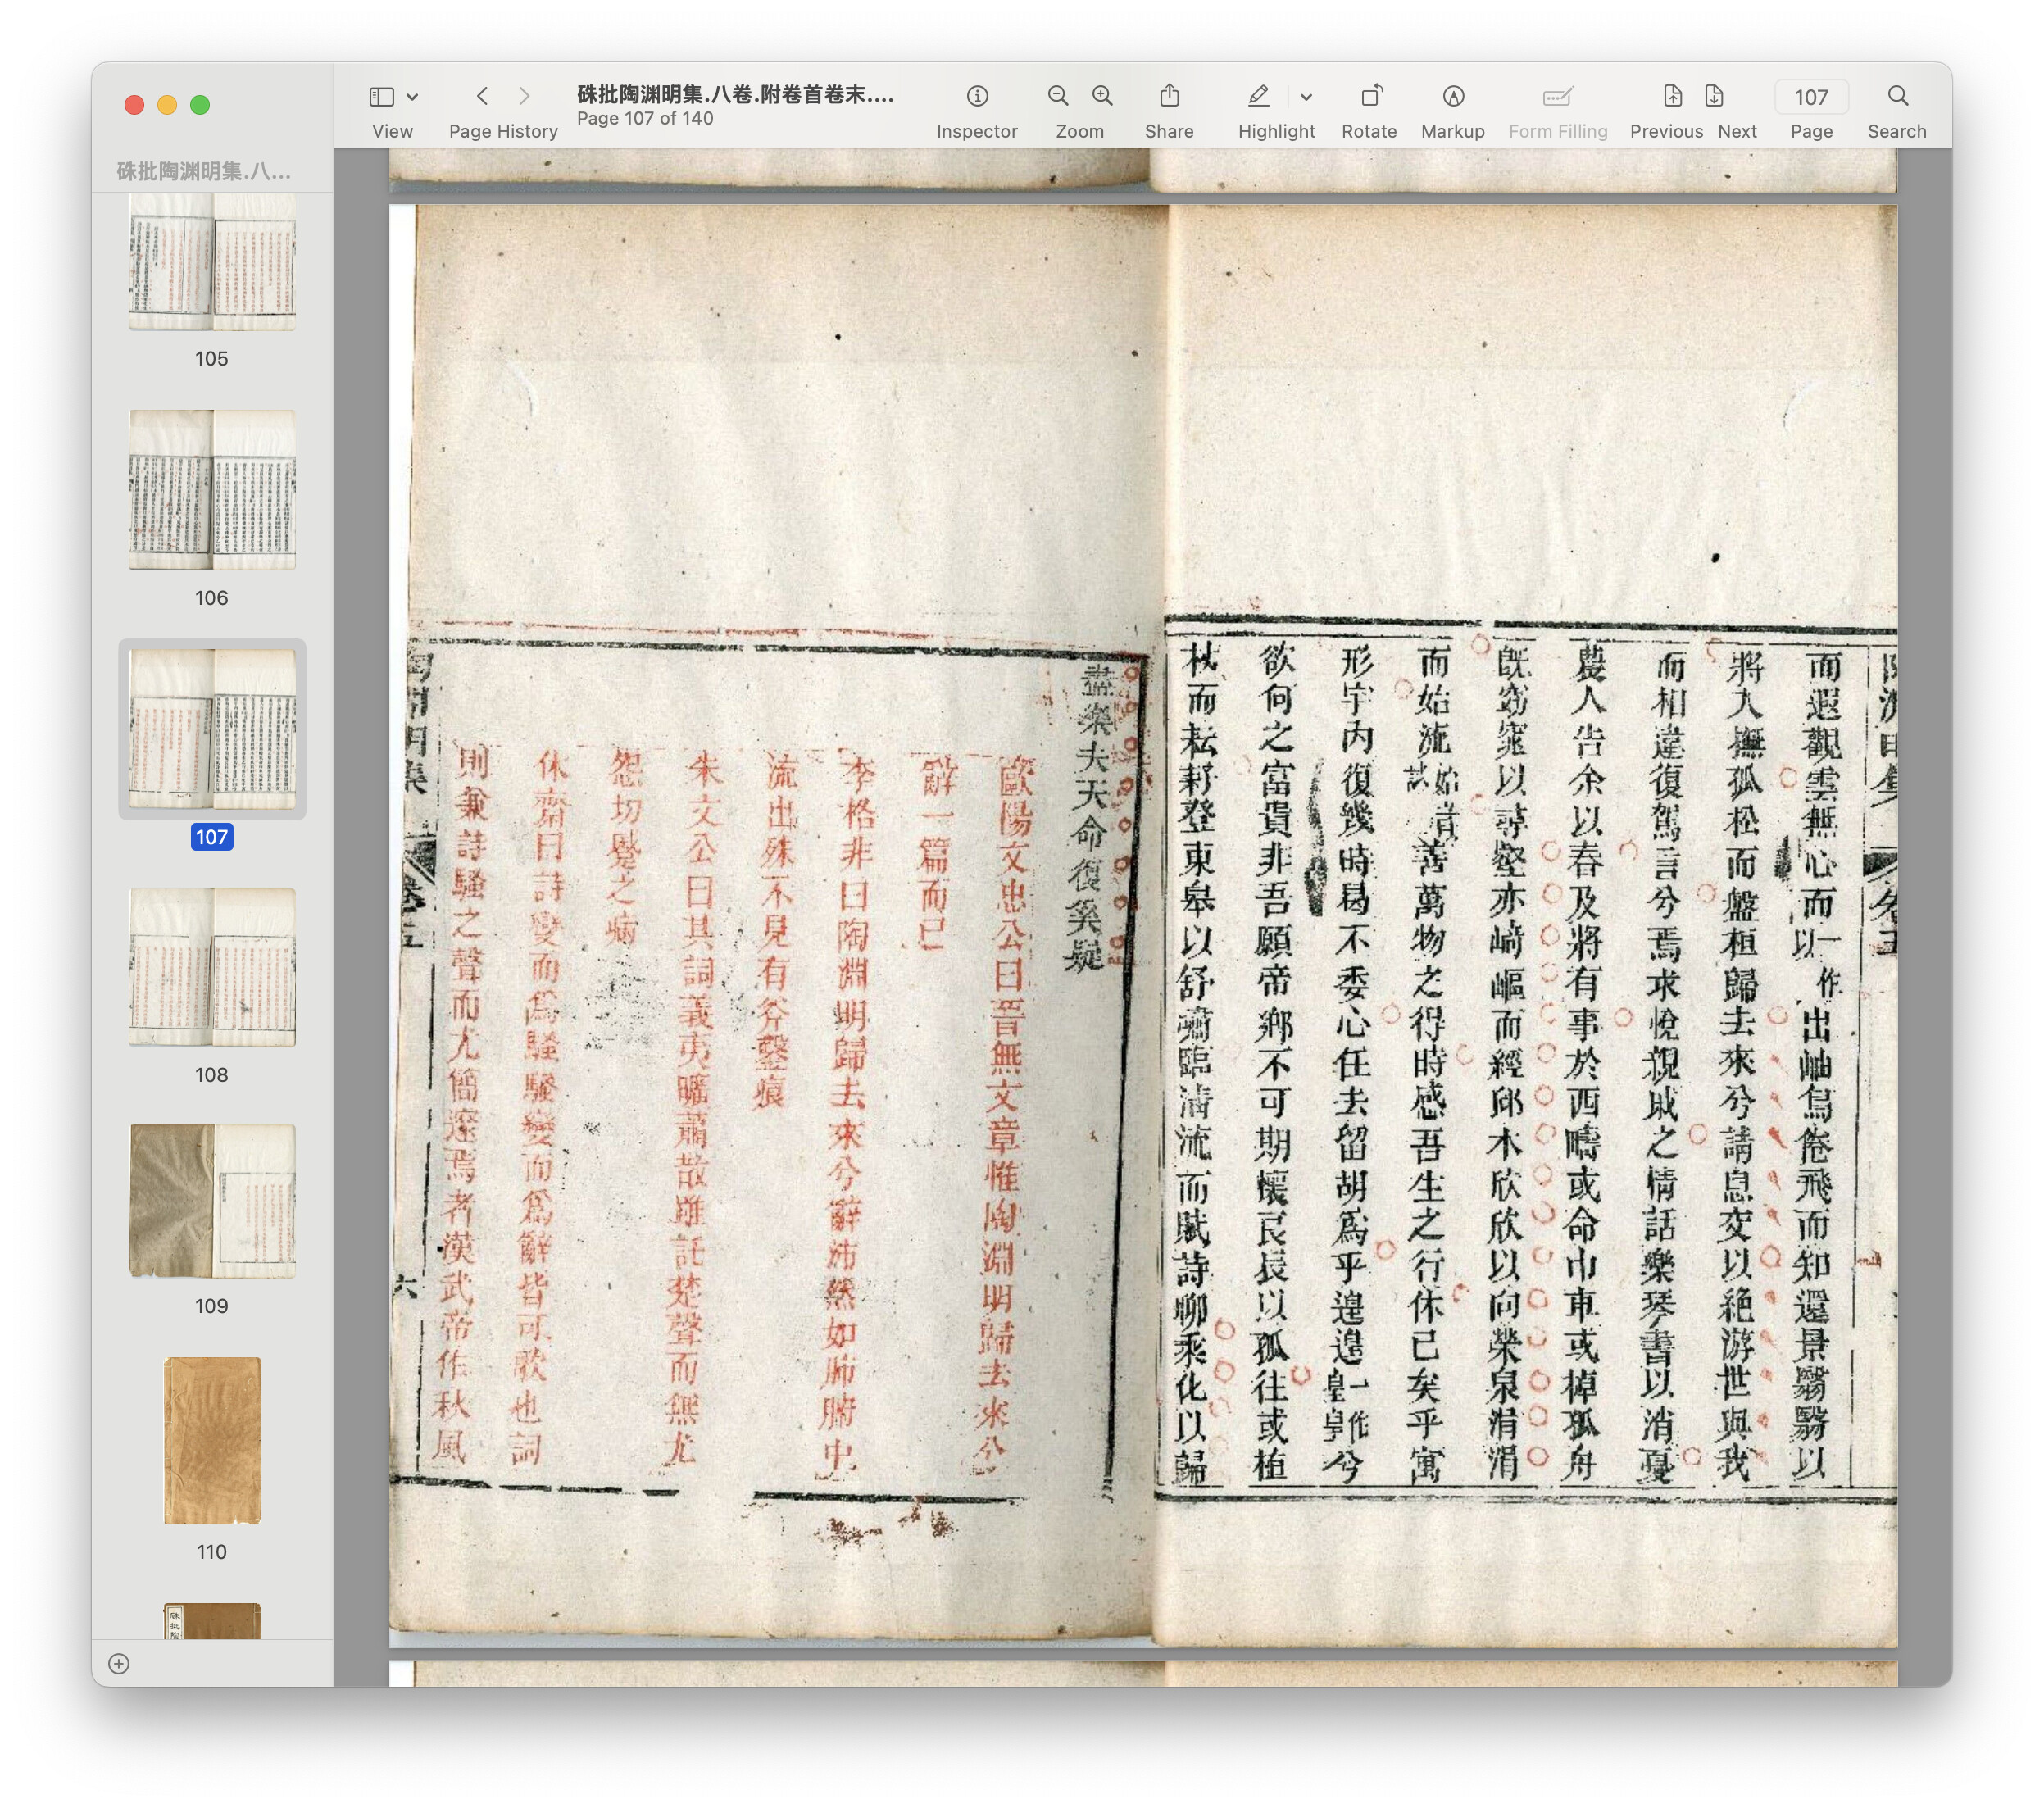 硃批陶渊明集.八卷.附卷首卷末....
Page 107 of 140
View
Page History
Inspector
Zoom
Share
Highlight
Rotate
Markup
Form Filling
Previous
Next
107
Page
Search
硃批陶渊明集.八...
105
106
107
108
109
110
而遐觀雲無心而一作以出岫鳥倦飛而知還景翳翳以
將入撫孤松而盤桓歸去來兮請息交以絶游世與我
而相違復駕言兮焉求悅親戚之情話樂琴書以消憂
農人告余以春及將有事於西疇或命巾車或棹孤舟
旣窈窕以尋壑亦崎嶇而經邱木欣欣以向榮泉涓涓
而始流善萬物之得時感吾生之行休已矣乎寓
形宇内復幾時曷不委心任去留胡爲乎遑遑一作皇皇兮
欲何之富貴非吾願帝鄉不可期懷良辰以孤往或植
杖而耘耔登東皋以舒嘯臨清流而賦詩聊乘化以歸
盡樂夫天命復奚疑
歐陽文忠公曰晉無文章惟陶淵明歸去來兮
辭一篇而已
李格非曰陶淵明歸去來兮辭沛然如肺腑中
流出殊不見有斧鑿痕
朱文公曰其詞義夷曠蕭散雖託楚聲而無尤
怨切蹙之病
休齋曰詩變而爲騷騷變而爲辭皆可歌也詞
則兼詩騷之聲而尤簡邃焉者漢武帝作秋風
陶淵明集
卷五
六